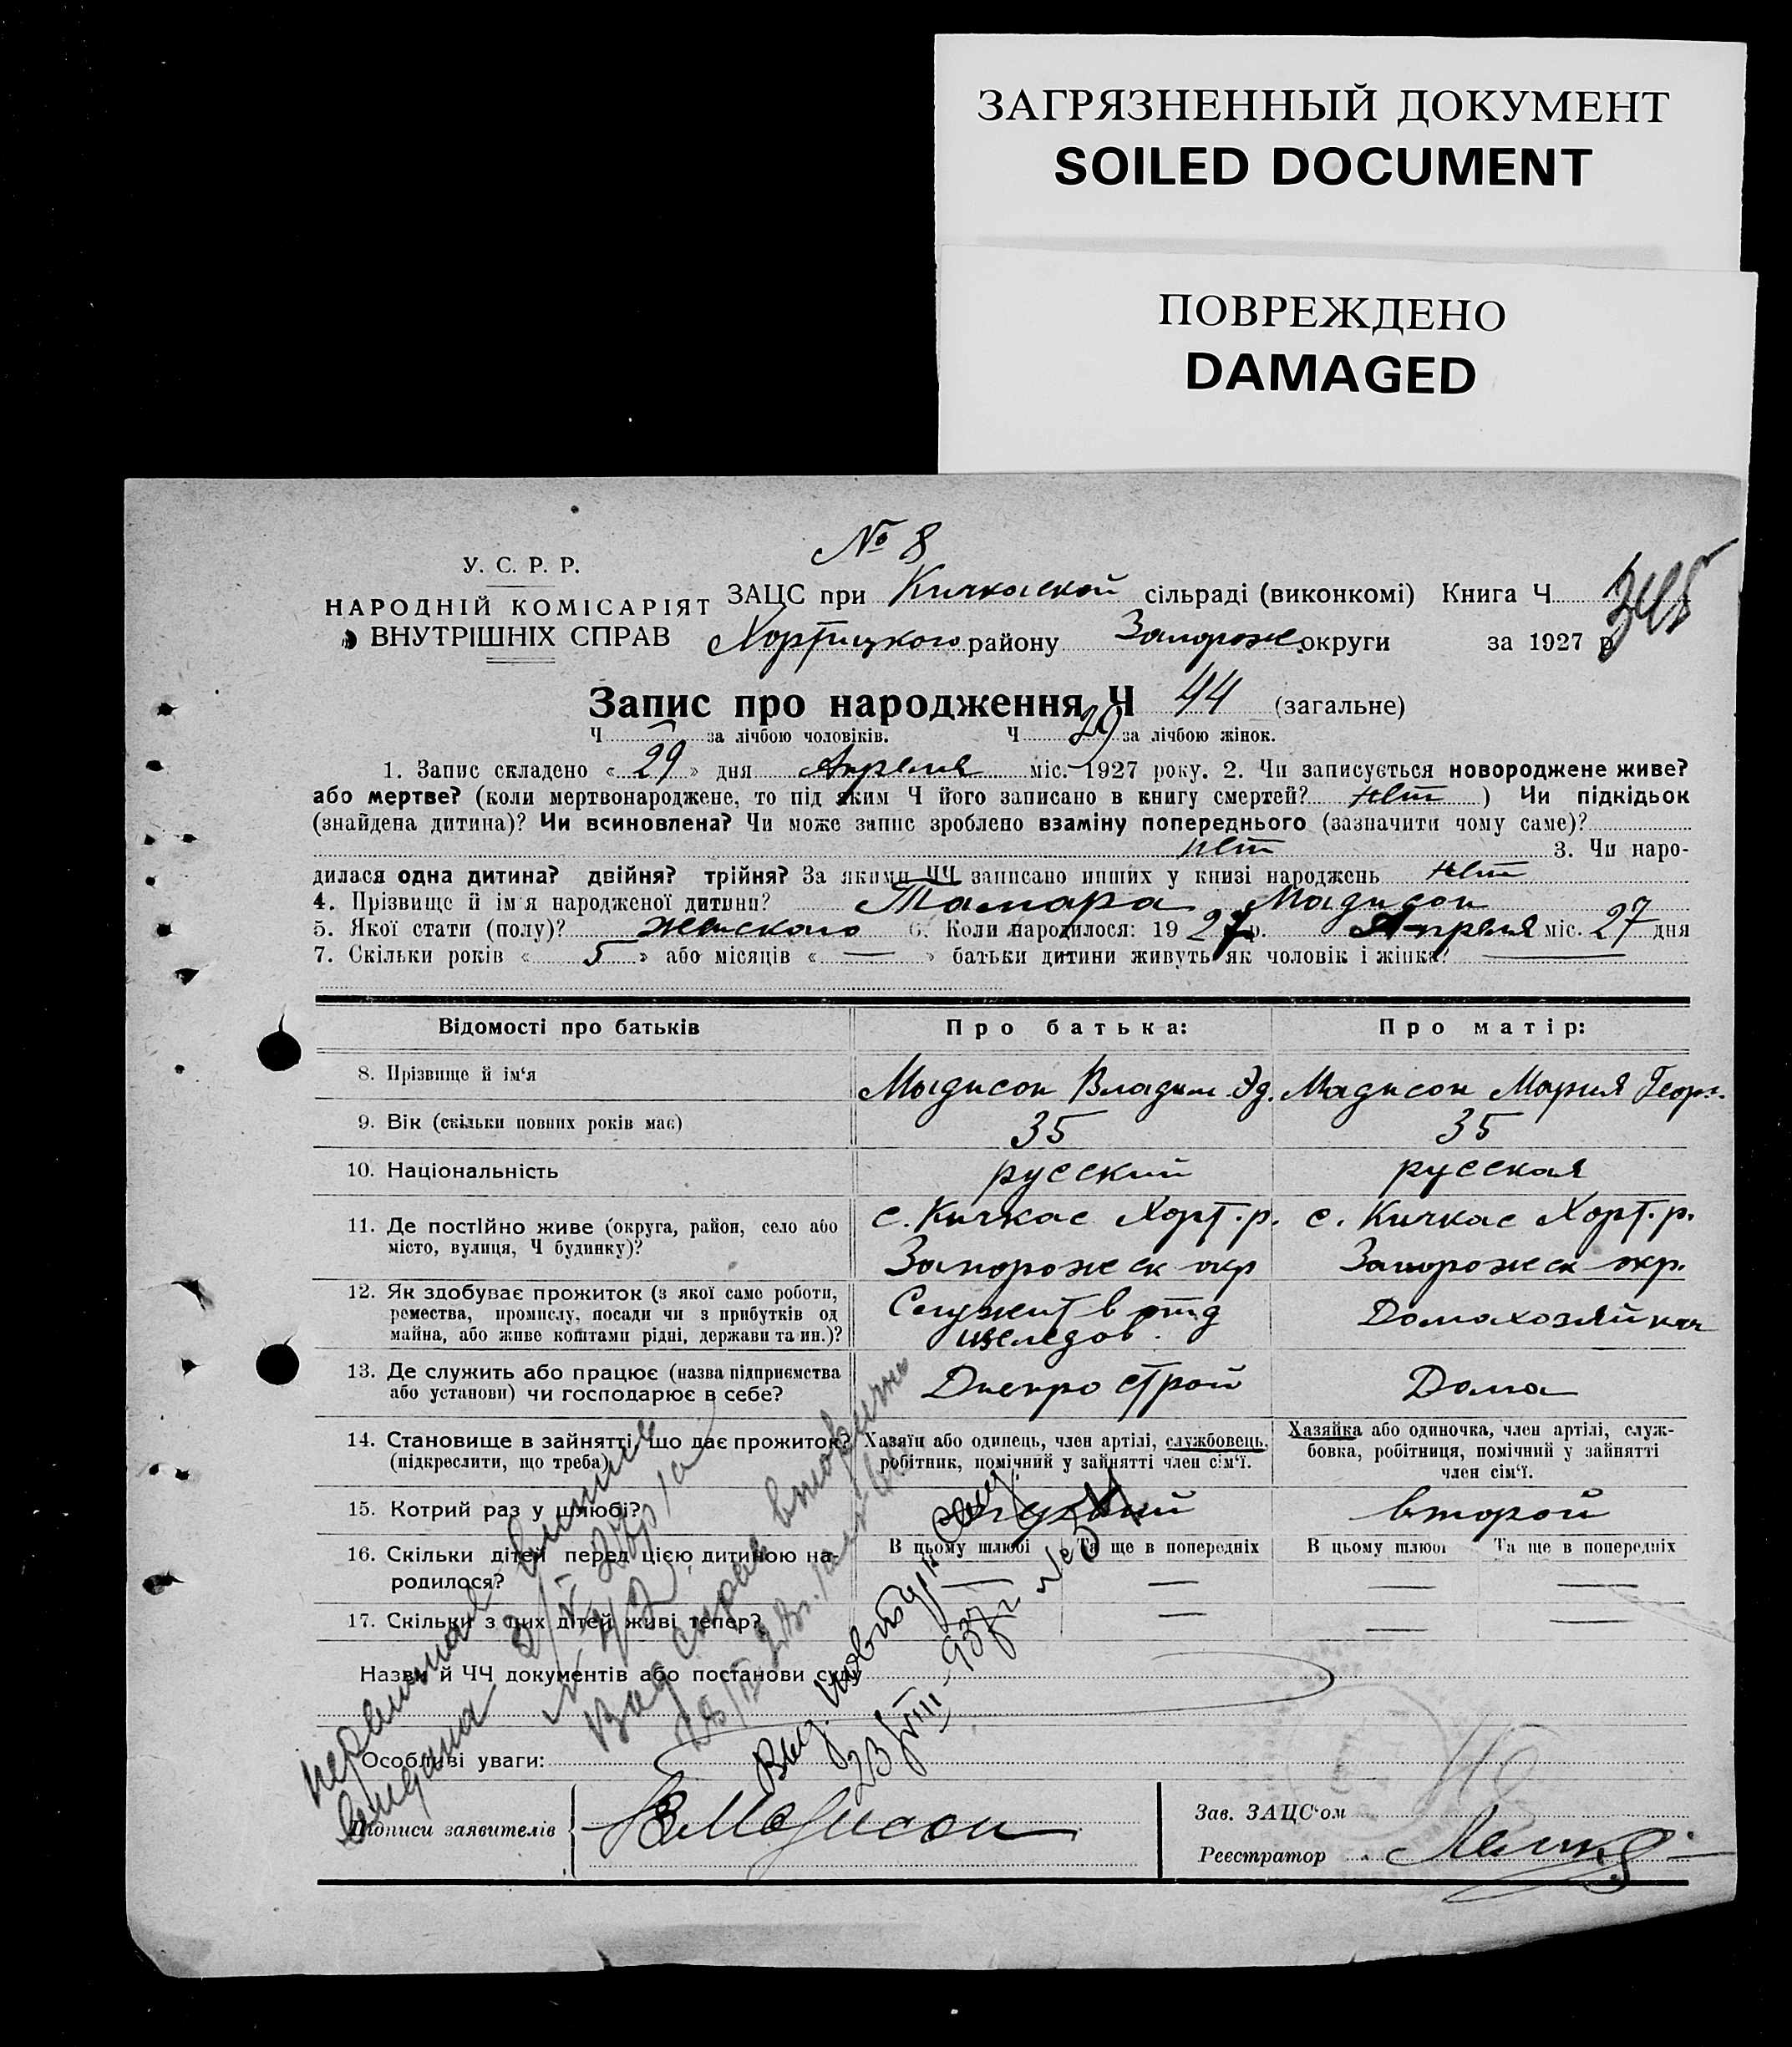 ЗАГРЯЗНЕННЫЙ ДОКУМЕНТ
SOILED DOCUMENT
ПОВРЕЖДЕНО
DAMAGED
№ 8
У. С. Р. Р.
НАРОДНІЙ КОМІСАРІЯТ
ВНУТРІШНІХ СПРАВ
ЗАЦС при Кичкаской сільраді (виконкомі) Книга Ч
Хортицкого району Запорож. округи за 1927 р.
Запис про народження Ч 44 (загальне)
Ч — за лічбою чоловіків. Ч 29 за лічбою жінок.
1. Запис складено « 29 » дня Апреля міс. 1927 року. 2. Чи записується новороджене живе?
або мертве? (коли мертвонароджене, то під яким Ч його записано в книгу смертей? нет ) Чи підкідьок
(знайдена дитина)? Чи всиновлена? Чи може запис зроблено взаміну попереднього (зазначити чому саме)?
нет 3. Чи наро-
дилася одна дитина? двійня? трійня? За якими ЧЧ записано инших у книзі народжень нет
4. Прізвище й ім'я народженої дитини? Тамара Мадисон
5. Якої стати (полу)? женского 6. Коли народилося: 1927 р. Апреля міс. 27 дня
7. Скільки років « 5 » або місяців « — » батьки дитини живуть як чоловік і жінка? —
Відомості про батьків Про батька: Про матір:
8. Прізвище й ім'я Мадисон Владим. Эд. Мадисон Мария Георг.
9. Вік (скільки повних років має) 35 35
10. Національність русский русская
11. Де постійно живе (округа, район, село або місто, вулиця, Ч будинку)?
с. Кичкас Хорт. р. с. Кичкас Хорт. р.
Запорожск окр Запорожск окр.
12. Як здобуває прожиток (з якої само роботи,
ремества, промислу, посади чи з прибутків од
майна, або живе коштами рідні, держави та ин.)?
Служит в отд изследов. Домахозяйка
13. Де служить або працює (назва підприємства
або установи) чи господарює в себе?
Днепрострой Дома
14. Становище в зайнятті, що дає прожиток?
(підкреслити, що треба)
Хазяїн або одинець, член артілі, службовець,
робітник, помічний у зайнятті член сім'ї.
Хазяйка або одиночка, член артілі, служ-
бовка, робітниця, помічний у зайнятті
член сім'ї.
15. Котрий раз у шлюбі? второй
16. Скільки дітей перед цією дитиною на-
родилося?
В цьому шлюбі Та ще в попередніх В цьому шлюбі Та ще в попередніх
— — — —
17. Скільки з цих дітей живі тепер? — — —
Назви й ЧЧ документів або постанови суду
Особливі уваги:
Підписи заявителів В Мадисон
Зав. ЗАЦС'ом
Реєстратор
Выд. 23/VIII-937 г. №